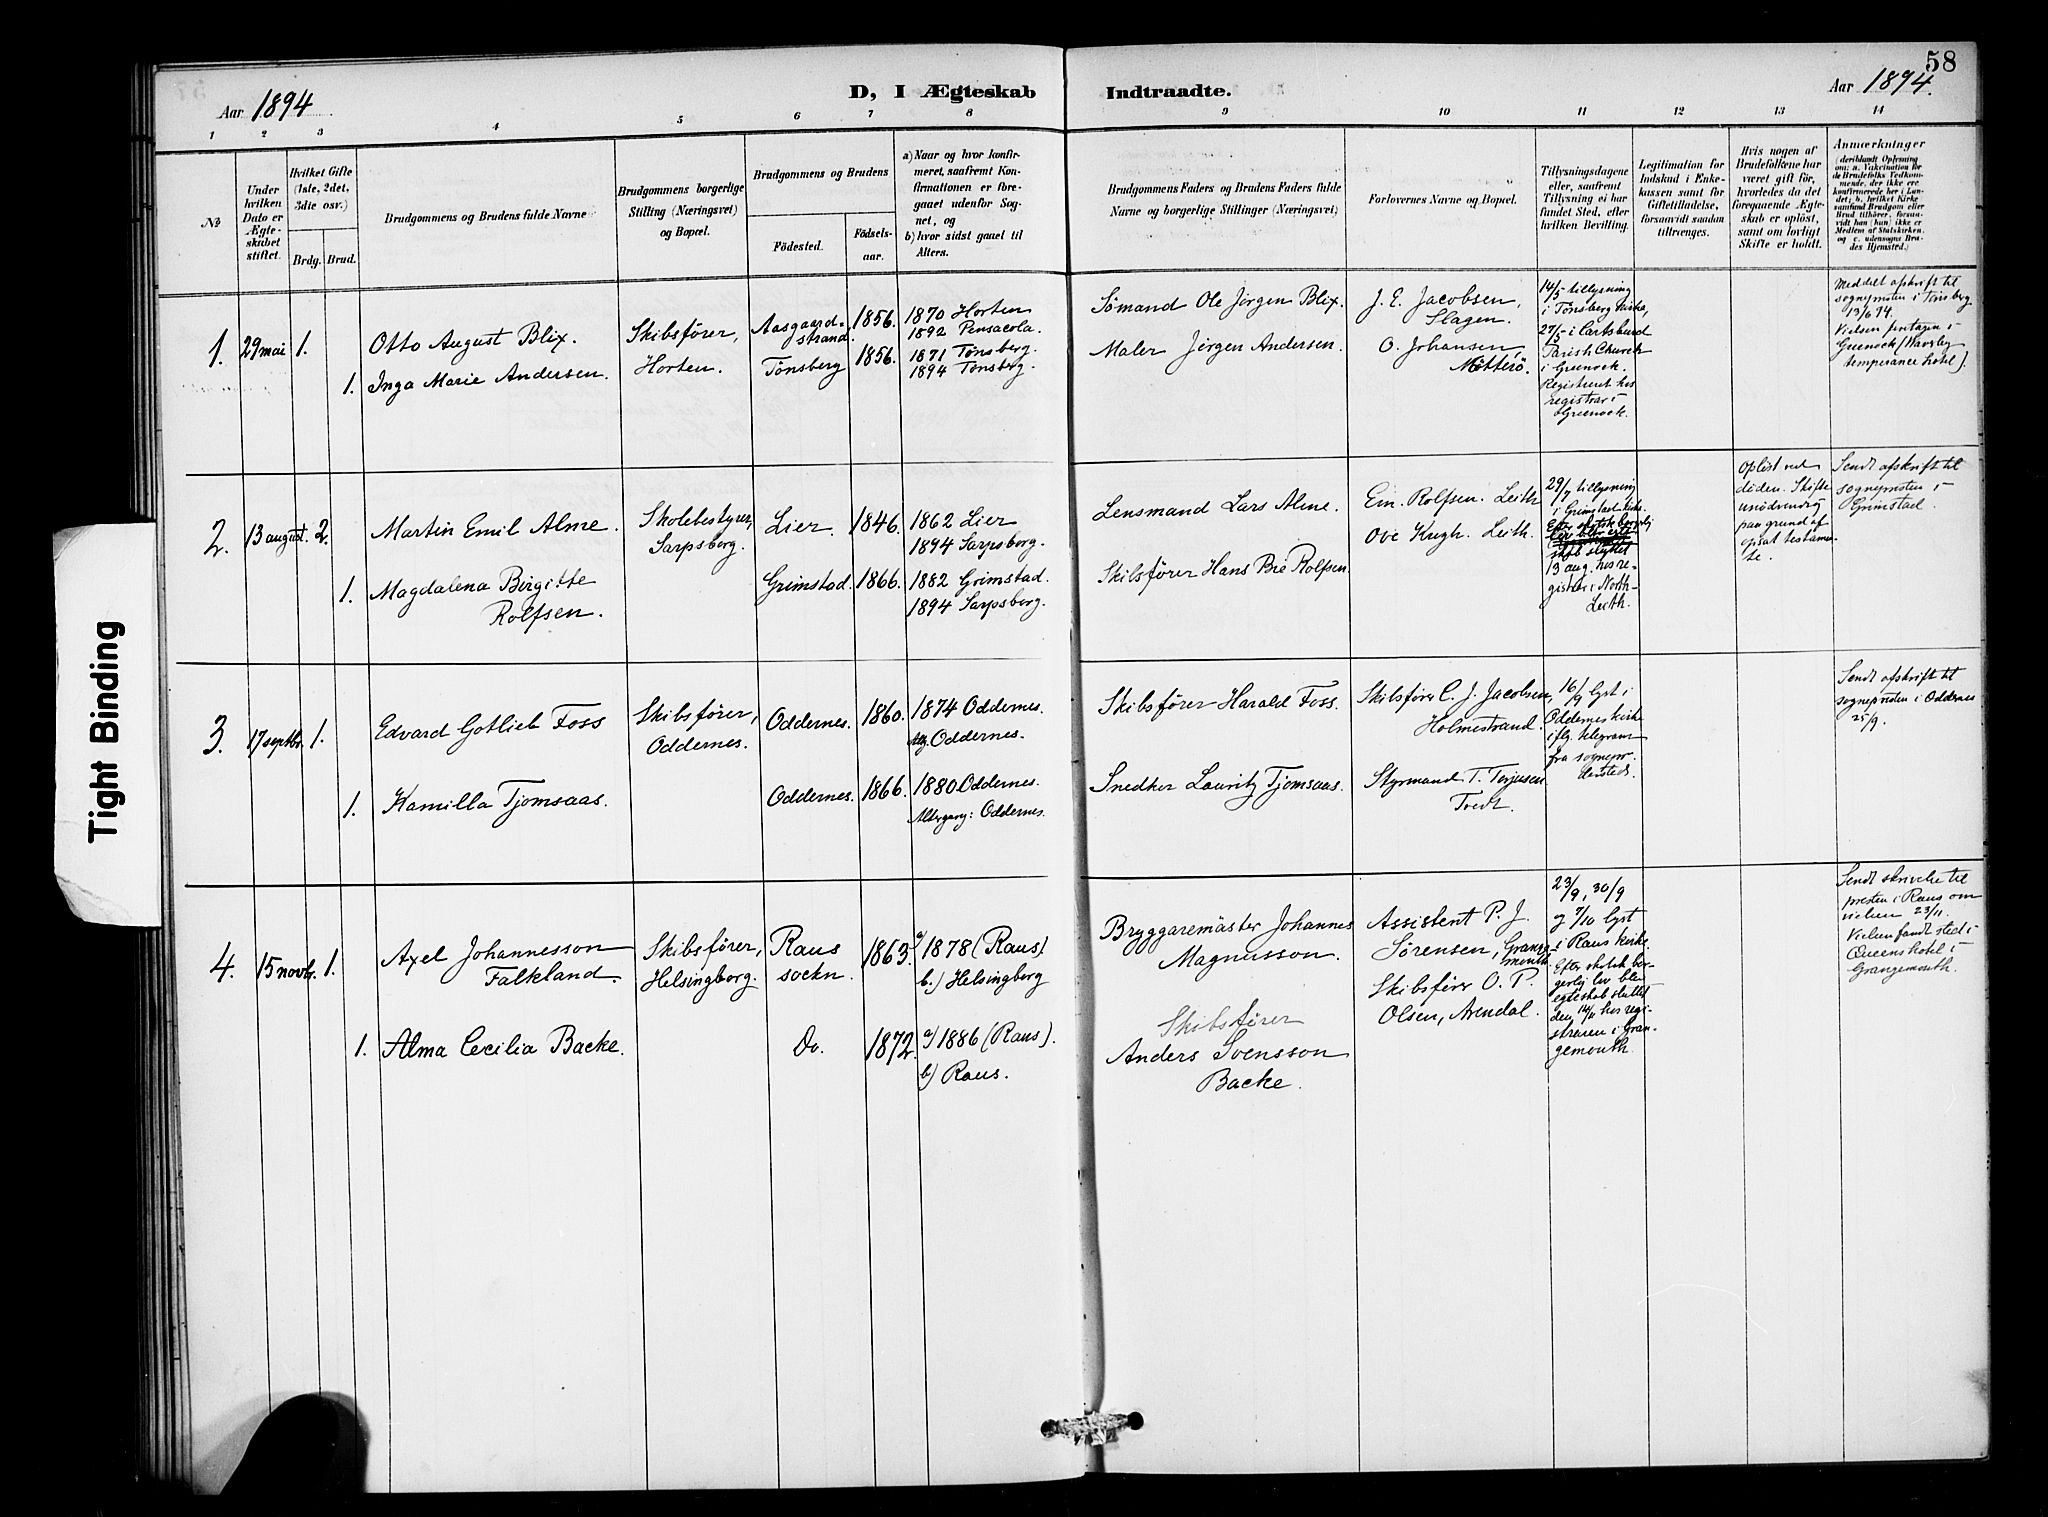 58
Aar 1894
D, I Ægteskab
Indtraadte.
Aar 1894.
1 2 3 4 5 6 7 8
9 10 11 12 13 14
№
Under hvilken Dato er Ægteskabet stiftet.
Hvilket Gifte (1ste, 2det, 3die osv.)
Brdg. Brud.
Brudgommens og Brudens fulde Navne
Brudgommens borgerlige Stilling (Næringsvei) og Bopæl.
Brudgommens og Brudens
Fødested.
Fødselsaar.
a) Naar og hvor konfirmeret, saafremt Konfirmationen er foregaaet udenfor Sognet, og
b) hvor sidst gaaet til Alters.
Brudgommens Faders og Brudens Faders fulde Navne og borgerlige Stillinger (Næringsvei)
Forlovernes Navne og Bopæl.
Tillysningsdagene eller, saafremt Tillysning ei har fundet Sted, efter hvilken Bevilling.
Legitimation for Indskud i Enkekassen samt for Giftetilladelse, forsaavidt saadan tiltrænges.
Hvis nogen af Brudefolkene har været gift før, hvorledes da det foregaaende Ægteskab er opløst, samt om lovligt Skifte er holdt.
Anmærkninger
(deriblandt Oplysning om: a. Vakcination for de Brudefolks Vedkommende, der ikke ere konfirmerede her i Landet; b. hvilket Kirkesamfund Brudgom eller Brud tilhører, forsaavidt han (hun) ikke er Medlem af Statskirken, og c. udensogns Brudes Hjemsted.)
1. 29 mai 1.
Otto August Blix.
1. Inga Marie Andersen.
Skibsfører,
Horten.
Aasgaard-
strand.
Tønsberg
1856.
1856.
1870 Horten
1892 Pensacola.
1871 Tønsberg.
1894 Tønsberg.
Sømand Ole Jørgen Blix.
Maler Jørgen Andersen.
J. E. Jacobsen,
Slagen.
O. Johansen,
Nøtterø.
14/5 tillysning
i Tønsberg kirke,
27/5 i Cartsburd
Parish Church
i Greenock.
Registreret hos
registrar i
Greenock.
Meddelt afskrift til
sognepresten i Tønsberg
13/6 94.
Vielsen foretagen i
Greenock
temperance hotel).
2. 13 august. 2.
Martin Emil Alme.
1. Magdalena Birgitte
Rolfsen.
Skolebestyrer,
Sarpsborg.
Lier.
Grimstad.
1846.
1866.
1862 Lier
1894 Sarpsborg.
1882 Grimstad.
1894 Sarpsborg.
Lensmand Lars Alme.
Skibsfører Hans Bie Rolfsen.
Em. Rolfsen. Leith
Ove Krogh. Leith.
29/7 tillysning
i Grimstad kirke.
Efter skotsk borgerlig
skab sluttet
13 aug. hos re-
gistrar i North-
Leith.
Opløst ved
døden. Skifte
unødvendig
paa grund af
opsat testamen-
te.
Sendt afskrift til
sognepresten i
Grimstad.
3. 17 septbr. 1.
Edvard Gotlieb Foss
1. Kamilla Tjomsaas.
Skibsfører,
Oddernes.
Oddernes.
Oddernes.
1860.
1866.
1874 Oddernes.
Altg. Oddernes.
1880 Oddernes.
Altergang: Oddernes.
Skibsfører Harald Foss.
Snedker Lauritz Tjomsaas.
Skibsfører C. J. Jacobsen,
Holmestrand.
Styrmand T. Terjusen
Tvedt.
16/9 lyst i
Oddernes kirke
iflg. telegram
fra sognepr.
dersteds.
Sendt afskrift til
sognepresten i Oddernes
25/9.
4. 15 novbr. 1.
Axel Johannesson
Falkland.
1. Alma Cecilia Backe.
Skibsfører,
Helsingborg.
Raus
sockn.
Do.
1863.
1872.
a) 1878 (Raus)
b.) Helsingborg
a) 1886 (Raus).
b) Raus.
Bryggaremäster Johannes
Magnusson.
Skibsfører
Anders Svensson
Backe.
Assistent P. J.
Sørensen, Grange-
mouth.
Skibsfører O. P.
Olsen, Arendal.
23/9, 30/9
og 7/10 lyst
i Raus kirke.
Efter skotsk bor-
gerlig lov blev
egteskab sluttet
den 14/11 hos regi-
straren i Gran-
gemouth.
Sendt skrivelse til
presten i Raus om
vielsen 23/11.
Vielsen fandt sted i
Queens hotel i
Grangemouth.
Tight Binding